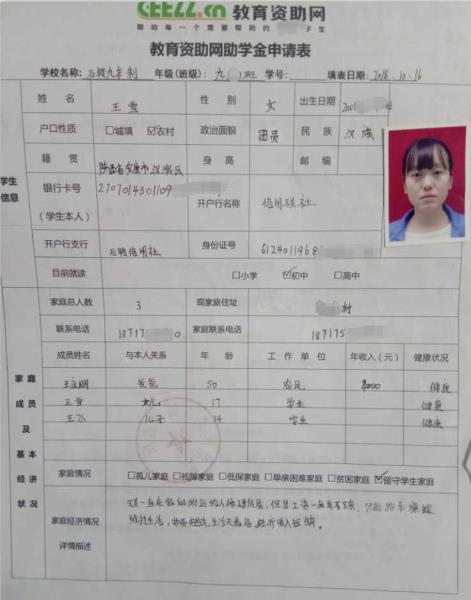 GEEZZ.cn 教育资助网
帮助每一个需要帮助的 学生
教育资助网助学金申请表
学校名称: 石转九年制 年级(班级): 九 班 学号: 填表日期: 2016.10.16
姓名 王雪 性别 女 出生日期 2001
户口性质 □城填 ☑农村 政治面貌 团员 民族 汉族
籍贯 陕西省安康市汉滨区 身高 邮编
学生信息
银行卡号 2707014301109
(学生本人) 开户行名称 信用联社
开户行支行 石转信用社 身份证号 6124011968
目前就读 □小学 ☑初中 □高中
家庭总人数 3 现家庭住址 村
联系电话 18717 0 家庭联系电话 187175
成员姓名 与本人关系 年龄 工作单位 年收入(元) 健康状况
爸爸 50 农民 健康
王雪 女儿 17 学生 健康
王飞 儿子 14 学生 健康
家庭成员及基本经济状况
家庭情况 □孤儿家庭 □残障家庭 □低保家庭 □单亲困难家庭 □贫困家庭 ☑留守学生家庭
家庭经济情况
详情描述
维持生活